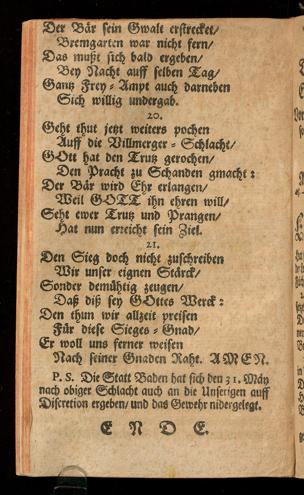 Der Bär sein Gwalt erstrecket/
Bremgarten war nicht fern/
Das mußt sich bald ergeben/
Bey Nacht auff selben Tag/
Gantz Frey-Ampt auch darneben
Sich willig undergab.
20.
Geht thut jetzt weiters pochen
Auff die Villmerger-Schlacht/
GOtt hat den Trutz gerochen/
Den Pracht zu Schanden gmacht:
Der Bär wird Ehr erlangen/
Weil GOTT ihn ehren will/
Seht ewer Trutz und Prangen/
Hat nun erreicht sein Ziel.
21.
Den Sieg doch nicht zuschreiben
Wir unser eignen Stärck/
Sonder demühtig zeugen/
Daß diß sey GOttes Werck:
Den thun wir allzeit preisen
Für diese Sieges-Gnad/
Er woll uns ferner weisen
Nach seiner Gnaden Raht. AMEN.
P. S. Die Statt Baden hat sich den 31. Mäy
nach obiger Schlacht auch an die Unserigen auff
Discretion ergeben/ und das Gewehr nidergelegt.
E N D E.